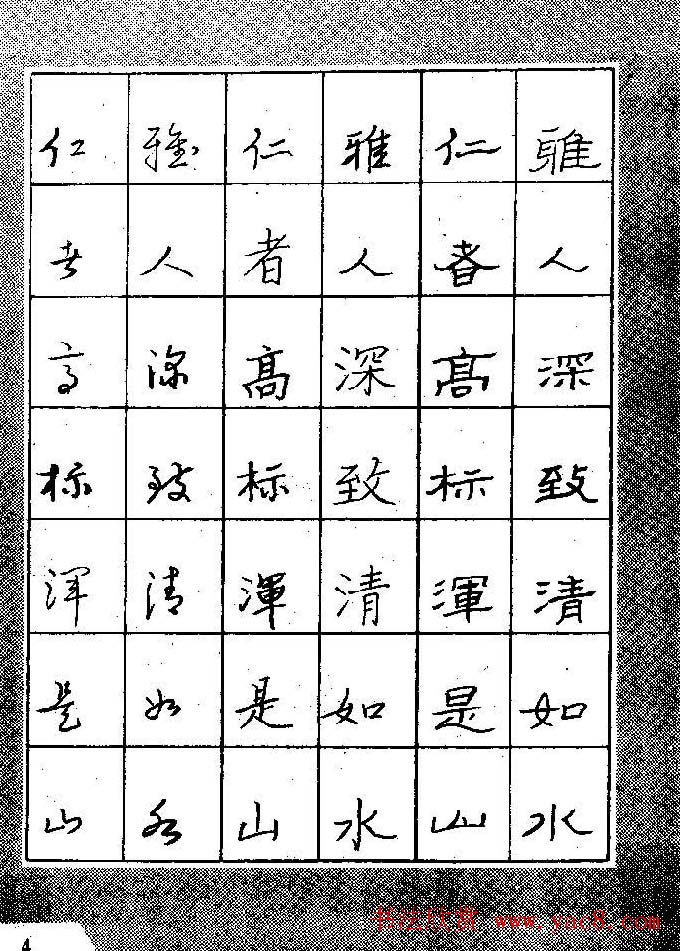 雅人深致清如水
仁者高标渾是山
雅人深致清如水
仁者高标渾是山
雅人深致清如水
仁者高标浑是山
4
书法欣赏 www.yac8.com